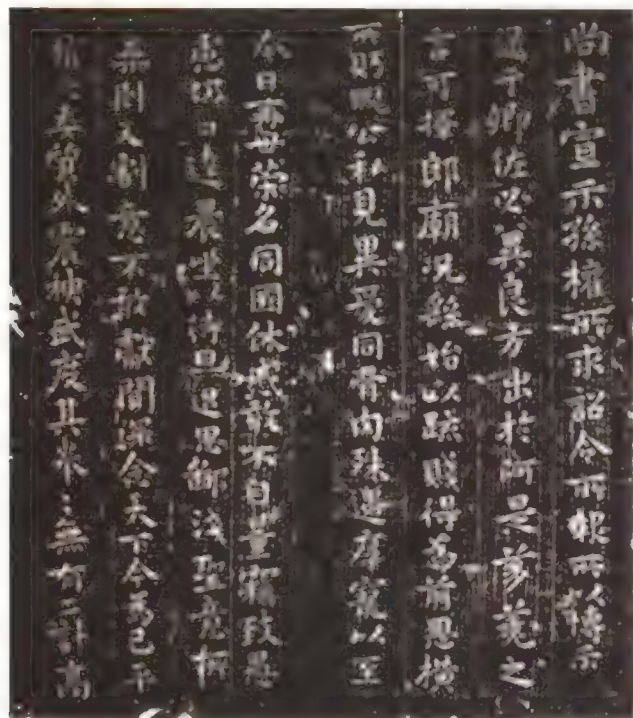 尚書宣示孫權所求詔令所報所以博示
逮于卿佐必冀良方出於阿是芻蕘之
言可擇郎廟況繇始以疏賤得為前恩橫
所眄睨公私見異愛同骨肉殊遇厚寵以至
今日再世榮名同國休慼敢不自量竊致愚
慮仍日達晨坐以待旦退思鄙淺聖意所
棄則又割意不敢獻聞深念天下今為已平
權之委質外震神武度其拳拳無有二計高